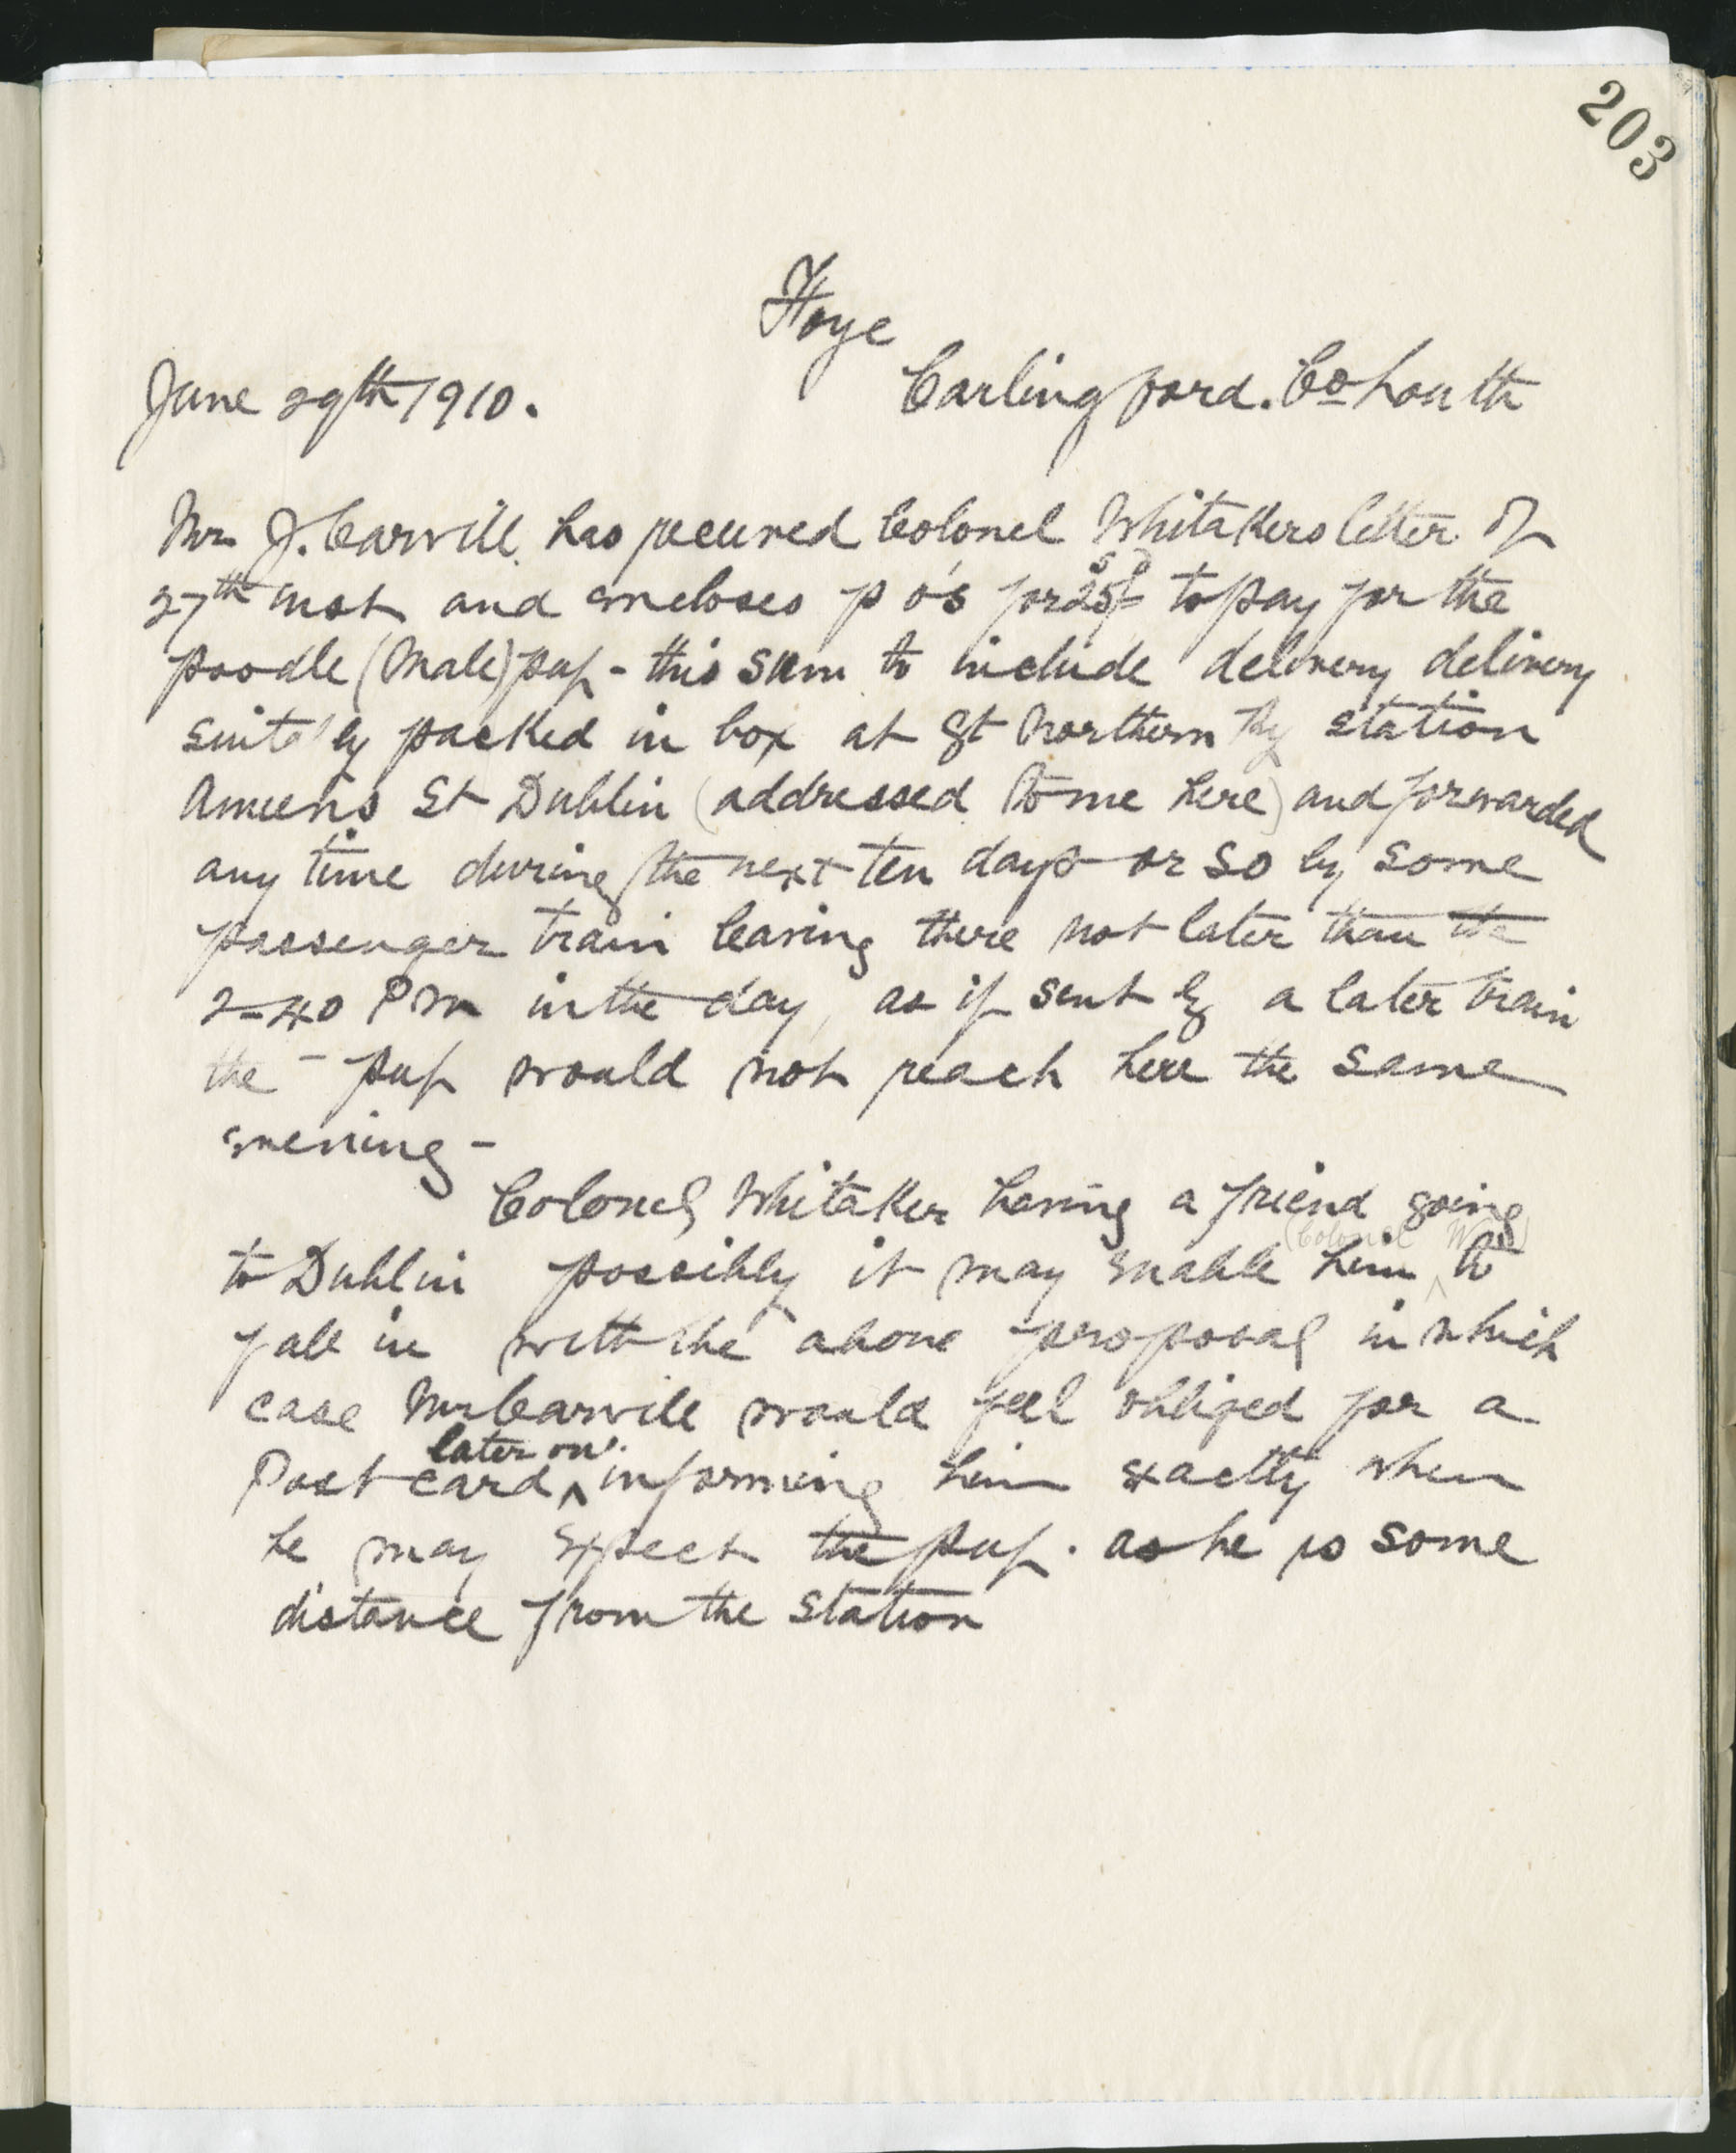 203
Foye
June 29th 1910. Carlingford. Co Louth
Mr J. Carvill has received Colonel Whitakers letter of
27th inst and encloses p o's for 25s/- to pay for the
poodle (Male) pup - this sum to include delivery delivery
suitably packed in box at Gt Northern Ry station
Amiens St Dublin (addressed to me here) and forwarded
any time during the next ten days or so by some
passenger train leaving there not later than the
2-40 PM in the day, as if sent by a later train
the - pup would not reach here the same
evening -
Colonel Whitaker having a friend going
to Dublin possibly it may enable him (Colonel W) to
fall in with the above proposal in which
case Mr Carvill would feel obliged for a
Post card later on informing him exactly when
he may expect the pup. as he is some
distance from the station